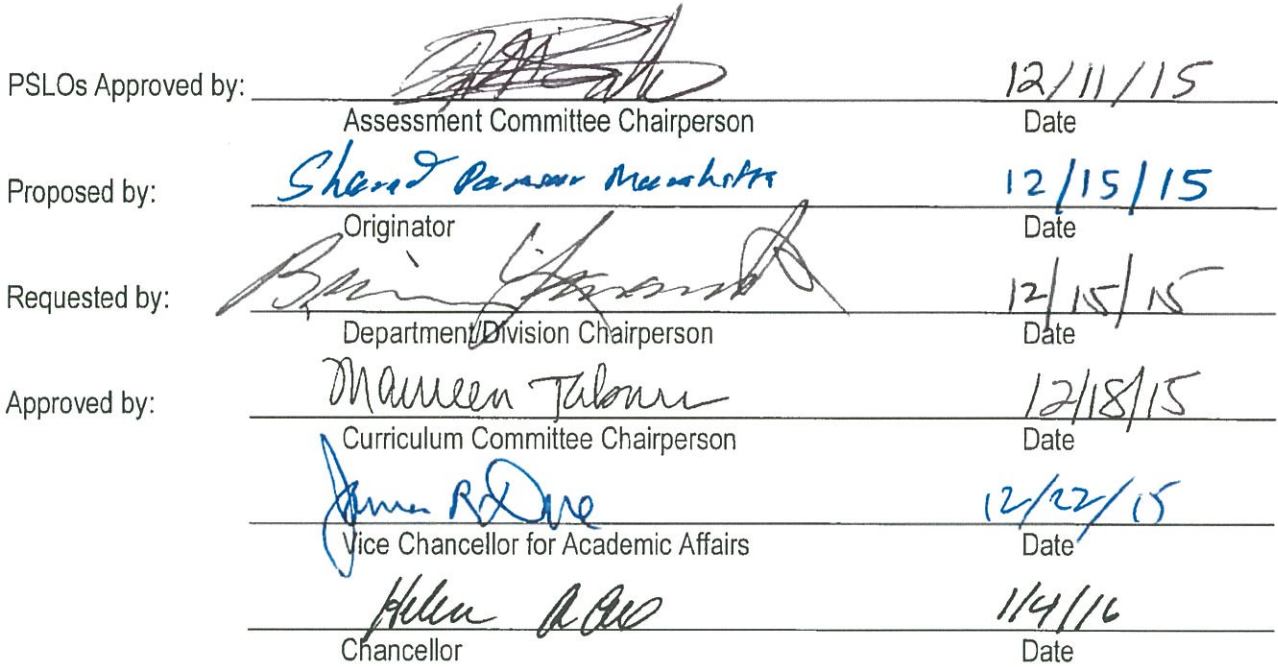 PSLOs Approved by: 12/11/15
Assessment Committee Chairperson Date
Proposed by: 12/15/15
Originator Date
Requested by: 12/15/15
Department/Division Chairperson Date
Approved by: Maureen 12/18/15
Curriculum Committee Chairperson Date
James R 12/22/15
Vice Chancellor for Academic Affairs Date
Helen 1/4/16
Chancellor Date